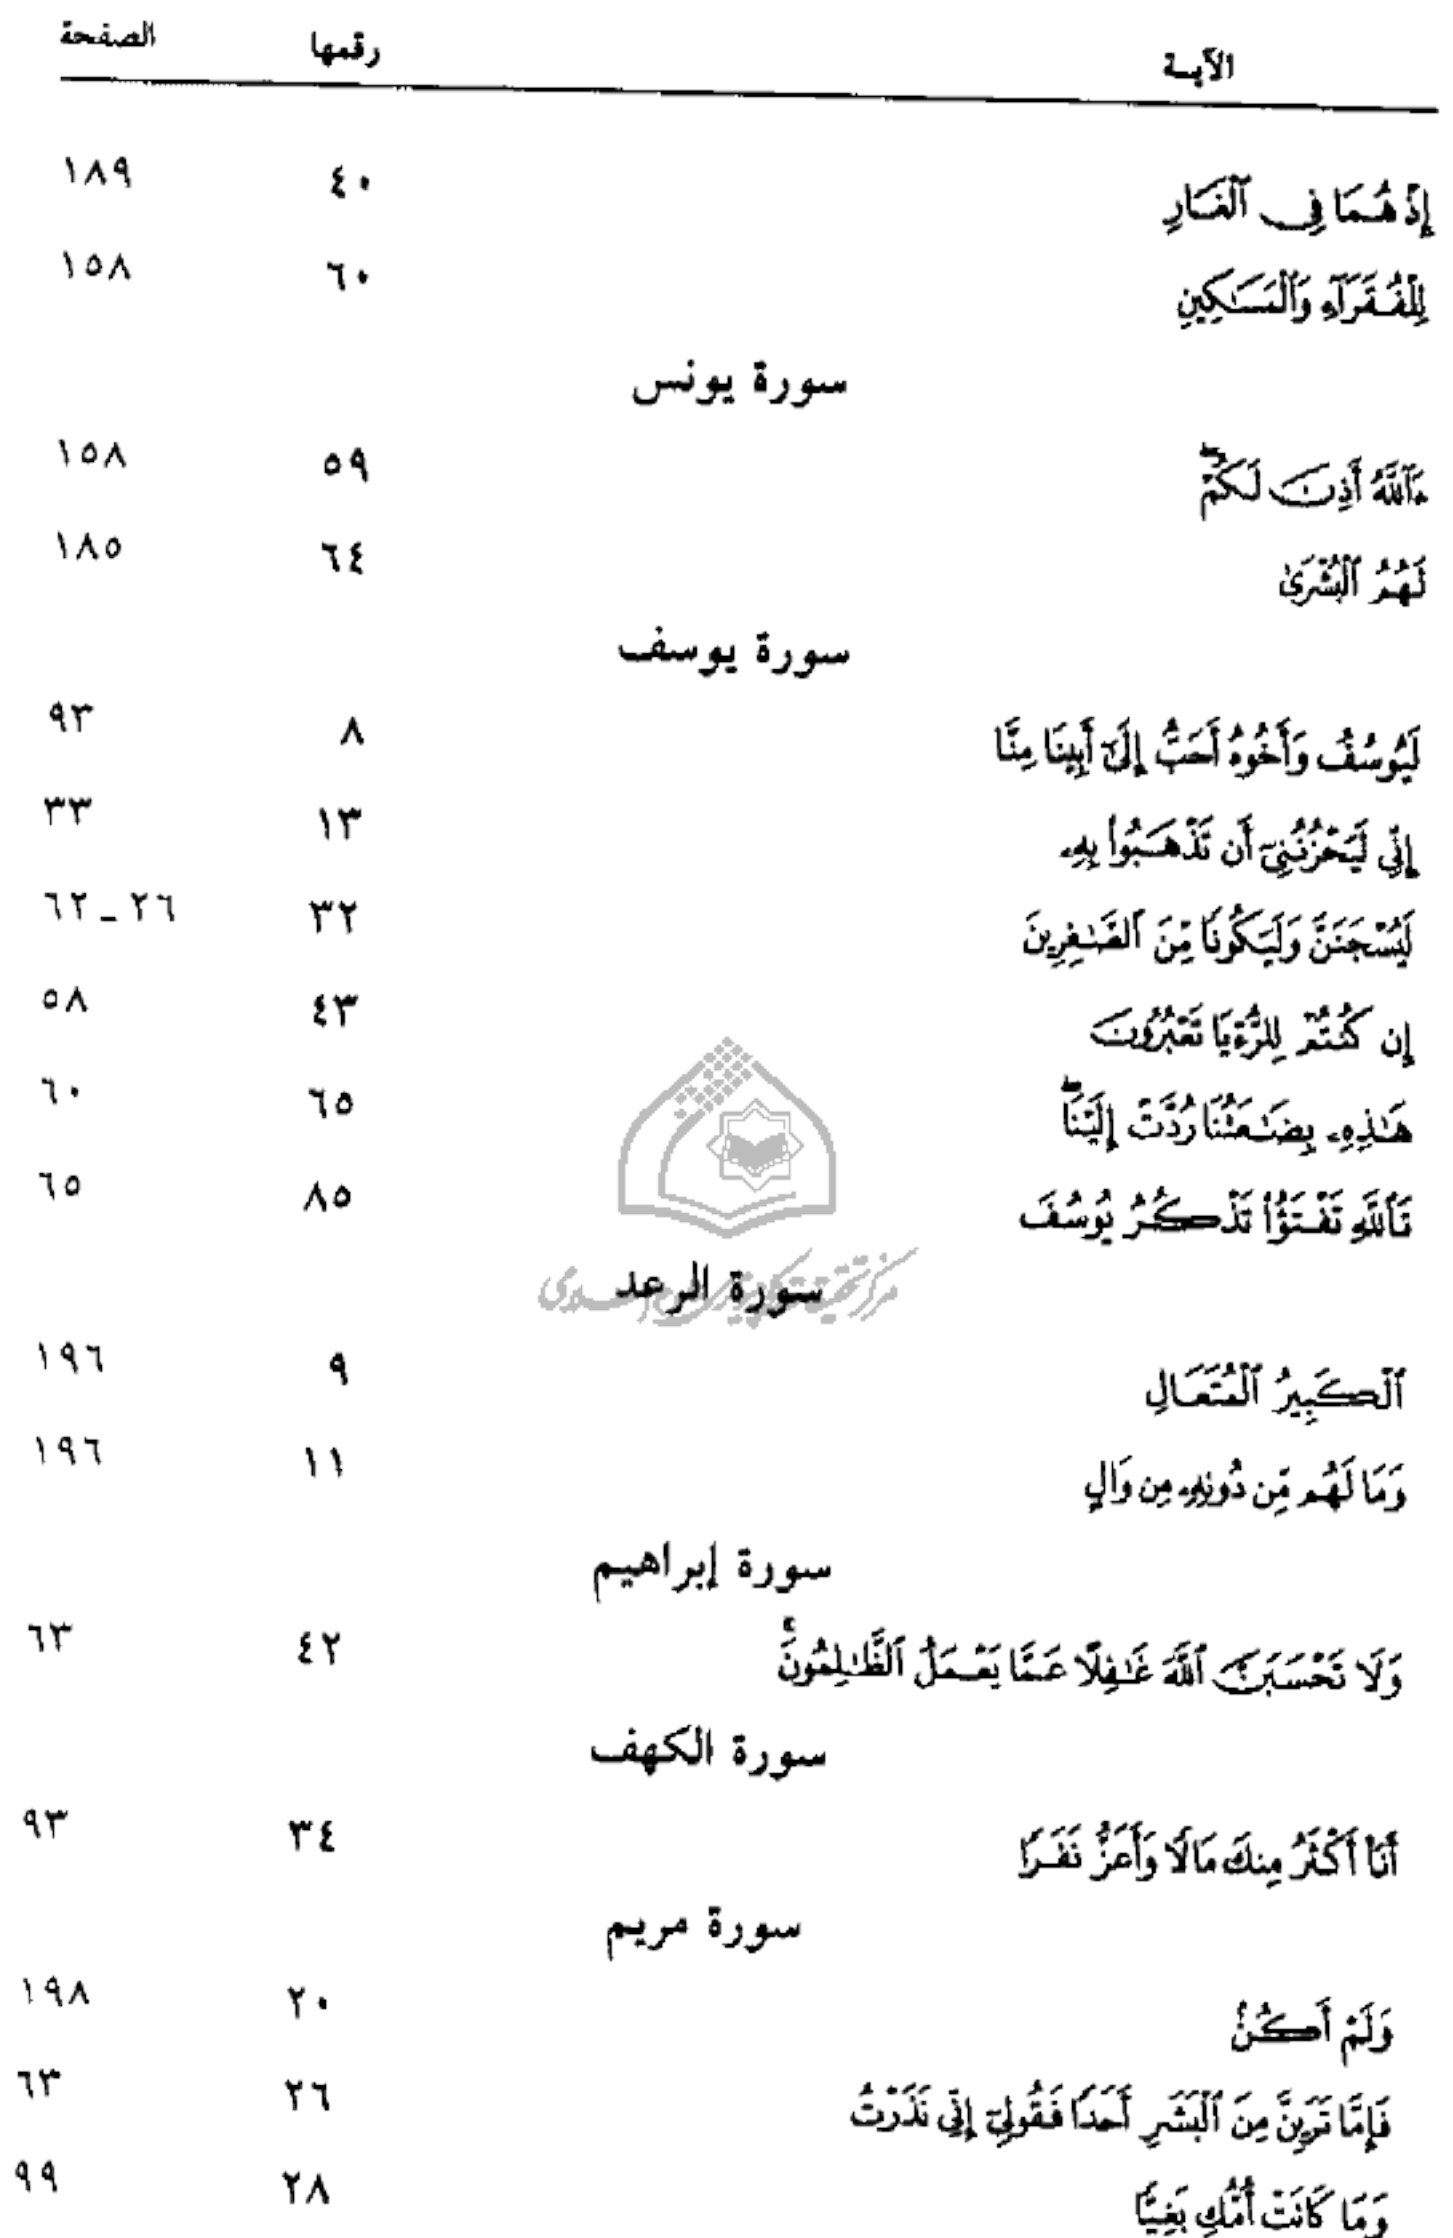 الآيــة رقمها الصفحة
إِذْ هُمَا فِي ٱلْغَارِ ٤٠ ١٨٩
لِلْفُقَرَآءِ وَٱلْمَسَٰكِينِ ٦٠ ١٥٨
سورة يونس
ءَآللَّهُ أَذِنَ لَكُمْۖ ٥٩ ١٥٨
لَهُمُ ٱلْبُشْرَىٰ ٦٤ ١٨٥
سورة يوسف
لَيُوسُفُ وَأَخُوهُ أَحَبُّ إِلَىٰٓ أَبِينَا مِنَّا ٨ ٩٣
إِنِّي لَيَحْزُنُنِيٓ أَن تَذْهَبُوا۟ بِهِۦ ١٣ ٣٣
لَيُسْجَنَنَّ وَلَيَكُونًا مِّنَ ٱلصَّٰغِرِينَ ٣٢ ٢٦ ـ ٦٢
إِن كُنتُمْ لِلرُّءْيَا تَعْبُرُونَ ٤٣ ٥٨
هَٰذِهِۦ بِضَٰعَتُنَا رُدَّتْ إِلَيْنَاۖ ٦٥ ٦٠
تَٱللَّهِ تَفْتَؤُا۟ تَذْكُرُ يُوسُفَ ٨٥ ٦٥
سورة الرعد
ٱلْكَبِيرُ ٱلْمُتَعَالِ ٩ ١٩٦
وَمَا لَهُم مِّن دُونِهِۦ مِن وَالٍ ١١ ١٩٦
سورة إبراهيم
وَلَا تَحْسَبَنَّ ٱللَّهَ غَٰفِلًا عَمَّا يَعْمَلُ ٱلظَّٰلِمُونَۚ ٤٢ ٦٣
سورة الكهف
أَنَا۠ أَكْثَرُ مِنكَ مَالًا وَأَعَزُّ نَفَرًا ٣٤ ٩٣
سورة مريم
وَلَمْ أَكُنْ ٢٠ ١٩٨
فَإِمَّا تَرَيِنَّ مِنَ ٱلْبَشَرِ أَحَدًا فَقُولِيٓ إِنِّي نَذَرْتُ ٢٦ ٦٣
وَمَا كَانَتْ أُمُّكِ بَغِيًّا ٢٨ ٩٩